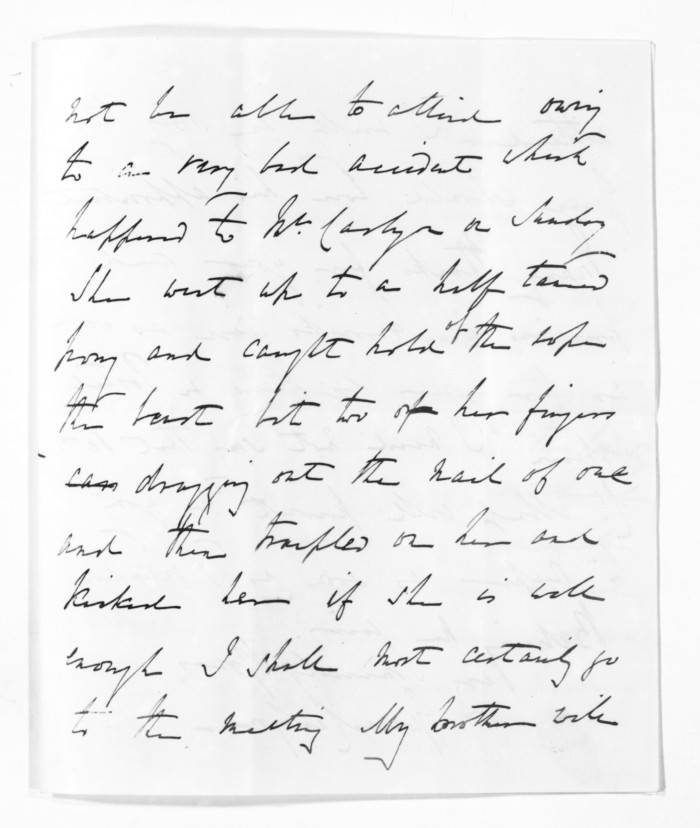 not be able to attend owing
to a very bad accident which
happened to Mrs. Carlyon on Sunday
She went up to a half tamed
pony and caught hold of the rope
the beast bit two of her fingers
dragging out the nail of one
and then trampled on her and
kicked her if she is well
enough I shall most certainly go
to the meeting My brother will